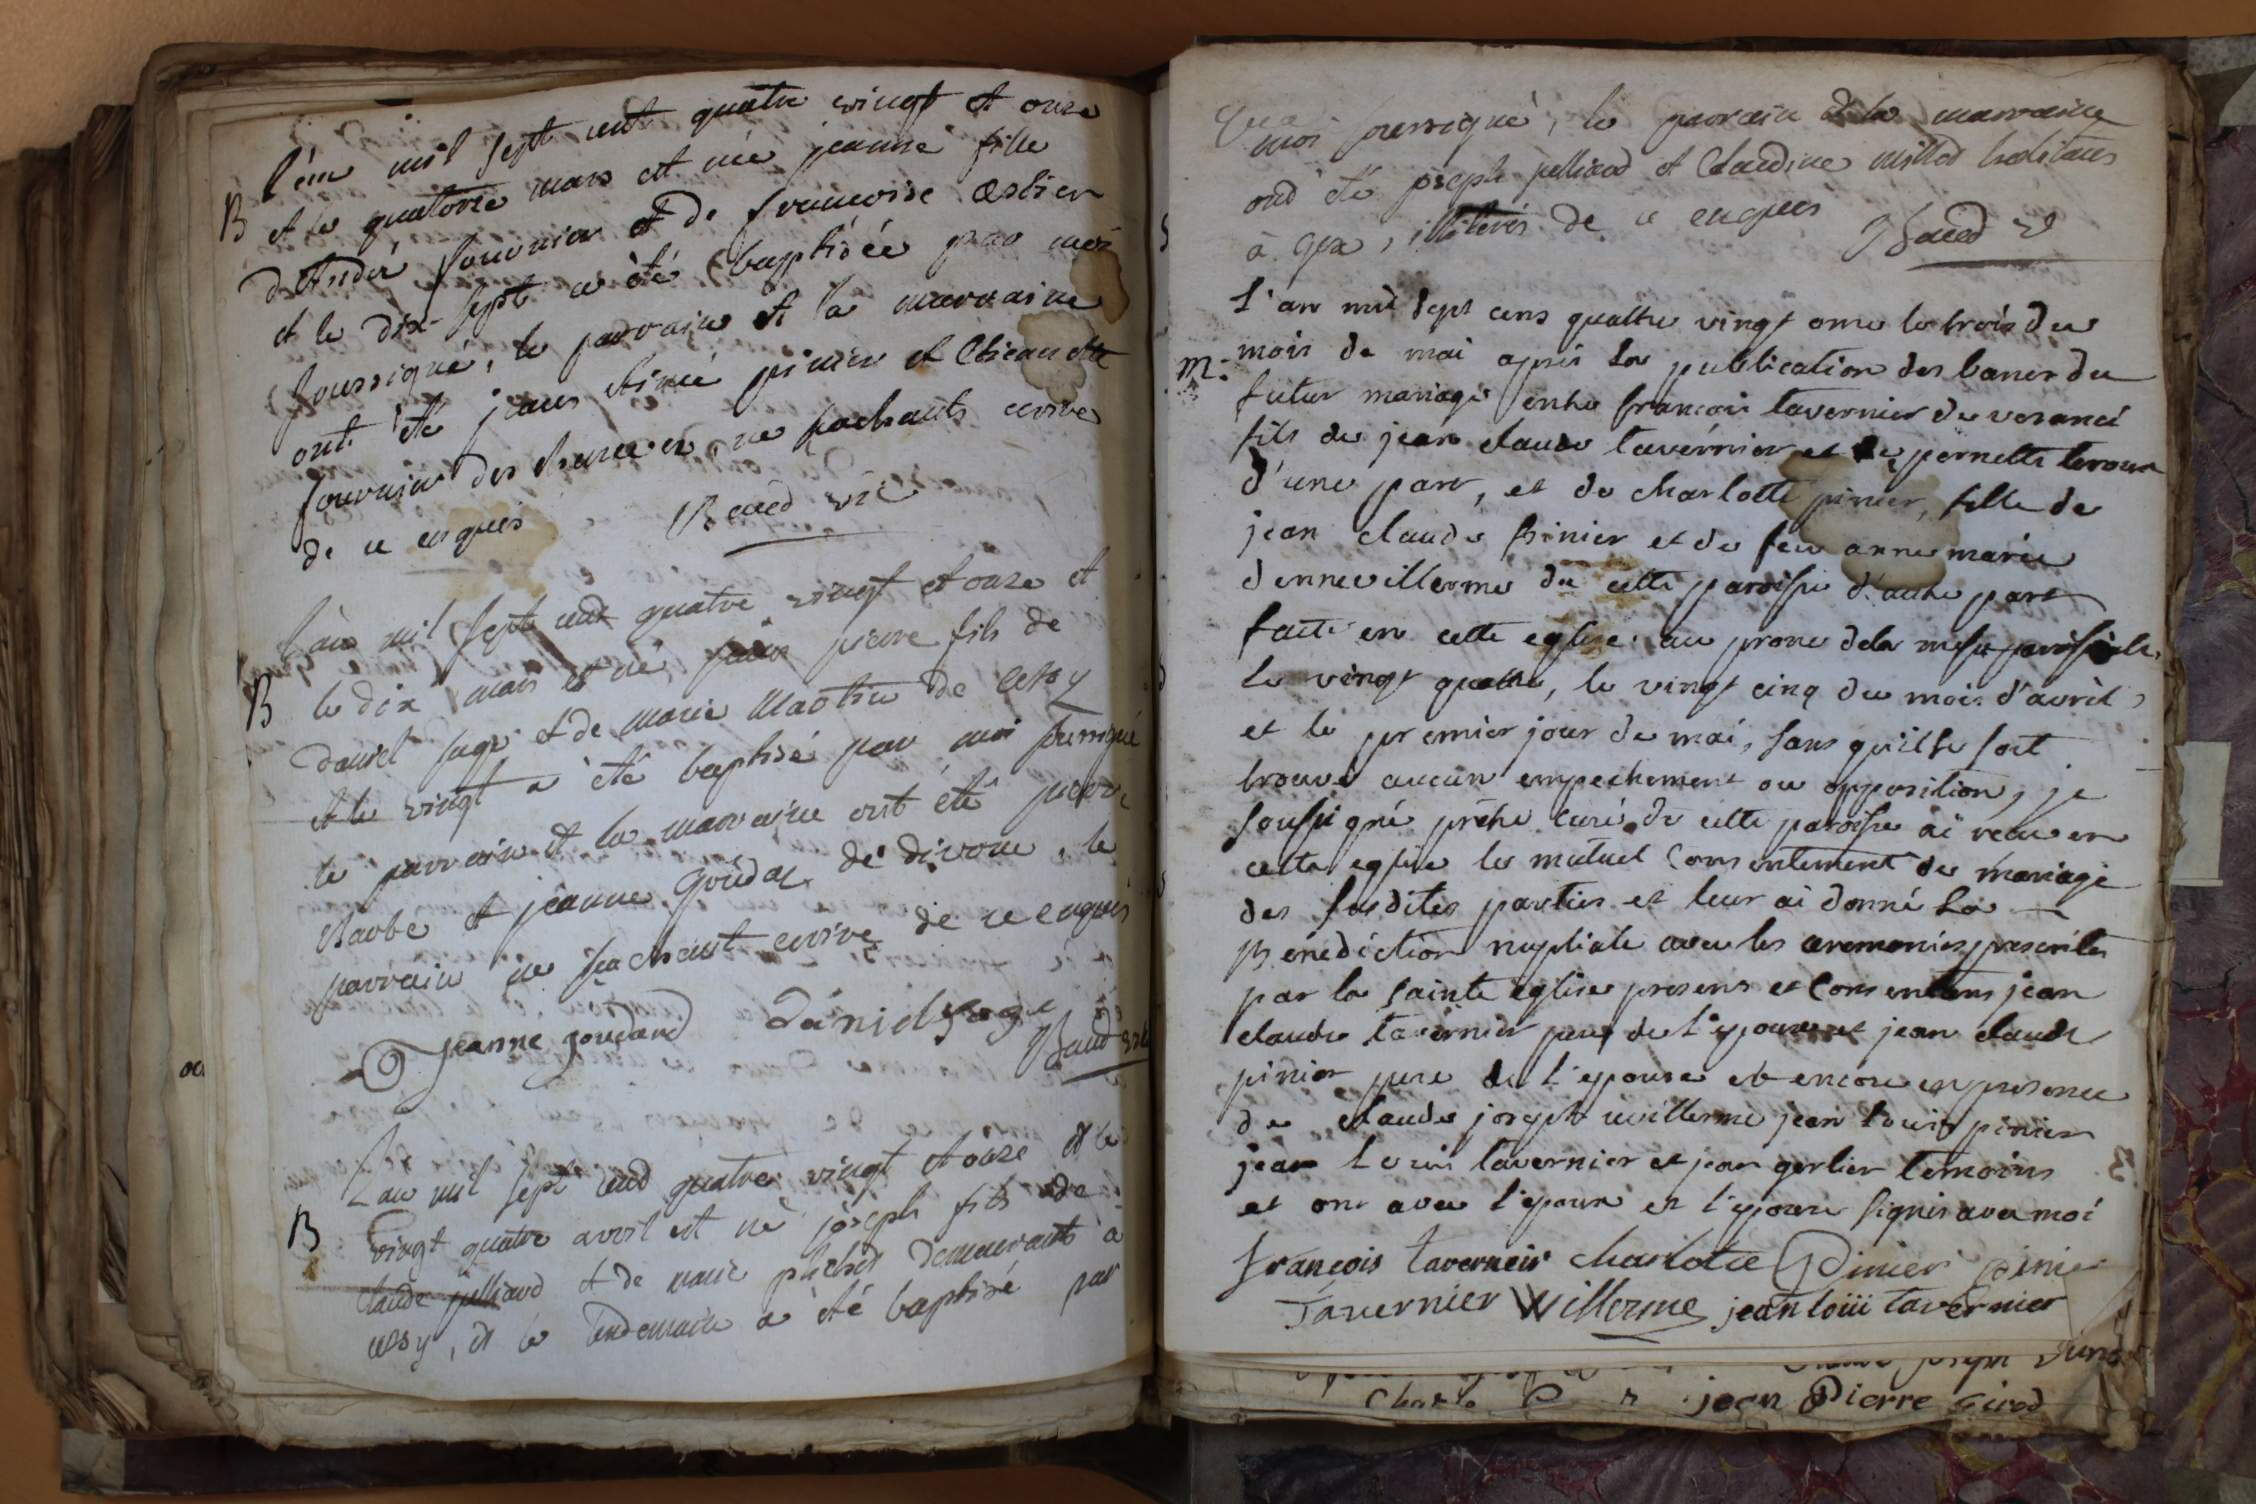 l'an mil sept cent quatre vingt et onze
B et le quatorze mars est née jeanne fille
d'André fournier et de francoise
et le dix-sept a été baptisée par moi
soussigné, le parrain et la marraine
ont été jean Aimé pinier et
fournier ne sachants ecrire
de ce enquis
l'an mil sept cent quatre vingt et onze et
B le dix mars est né pierre fils de
daniel sage et de marie Martin de Cessy
et le vingt a été baptisé par moi soussigné
le parrain et la marraine ont été pierre
Barbe et jeanne goudar de divone, le
parrain ne sachant ecrire de ce enquis
jeanne goudard daniel sage
L'an mil sept cent quatre vingt et onze et le
B vingt quatre avril est né joseph fils de
claude julliard et de marie demeurants à
cessy, et le lendemain a été baptisé par
moi soussigné, le parrain et la marraine
ont été joseph julliard et Claudine habitans
à gex, illiterés de ce enquis
L'an mil sept cens quattre vingt onze le trois du
m. mois de mai après la publication des bancs du
futur mariage entre francois tavernier de vesancî
fils de jean claude tavernier et de pernette
d'une part, et de charlotte pinier, fille de
jean claude Pinier et de feu anne marie
de cette paroisse d'autre part
faite en cette eglise au prone de la messe paroissiale,
le vingt quattre, le vingt cinq du mois d'avril,
et le premier jour de mai, sans qu'il se soit
trouvé aucun empechement ou opposition, je
soussigné prêtre curé de cette paroisse ai recu en
cette eglise le mutuel consentement de mariage
des susdites parties et leur ai donné la
Bénédiction nuptiale avec les ceremonies prescrites
par la sainte eglise presens et consentans jean
claude tavernier pere de l'epoux et jean claude
pinier pere de l'epouse et encore en presence
de claude joseph willerme jean louis pinier
jean louis tavernier et jean gerlier temoins
et ont avec l'epoux et l'epouse signés avec moi
françois taverneir charlotte Pinier pinier
Tavernier Willerme jean loiii tavernier
joseph
jean Pierre Girod